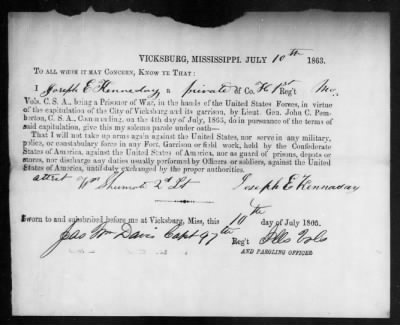 VICKSBURG, MISSISSIPPI, JULY 10th 1863.
TO ALL WHOM IT MAY CONCERN, KNOW YE THAT:
I Joseph E Kennaday a private of Co. H 1st Reg't Mo.
Vols. C. S. A., being a Prisoner of War, in the hands of the United States Forces, in virtue
of the capitulation of the City of Vicksburg and its garrison, by Lieut. Gen. John C. Pem-
berton, C. S. A., Commanding, on the 4th day of July, 1863, do in pursuance of the terms of
said capitulation, give this my solemn parole under oath—
That I will not take up arms again against the United States, nor serve in any military,
police, or constabulary force in any Fort, Garrison or field work, held by the Confederate
States of America, against the United States of America, nor as guard of prisons, depots or
stores, nor discharge any duties usually performed by Officers or soldiers, against the United
States of America, until duly exchanged by the proper authorities.
attest Wm Shumate 2d Lt Joseph E Kennaday
Sworn to and subscribed before me at Vicksburg, Miss., this 10th day of July 1863.
Jas Wm Davis Capt 97th Reg't Ills Vols
AND PAROLING OFFICER